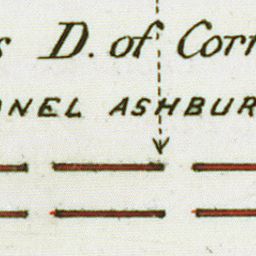 s D. of Corn
ONEL ASHBUR